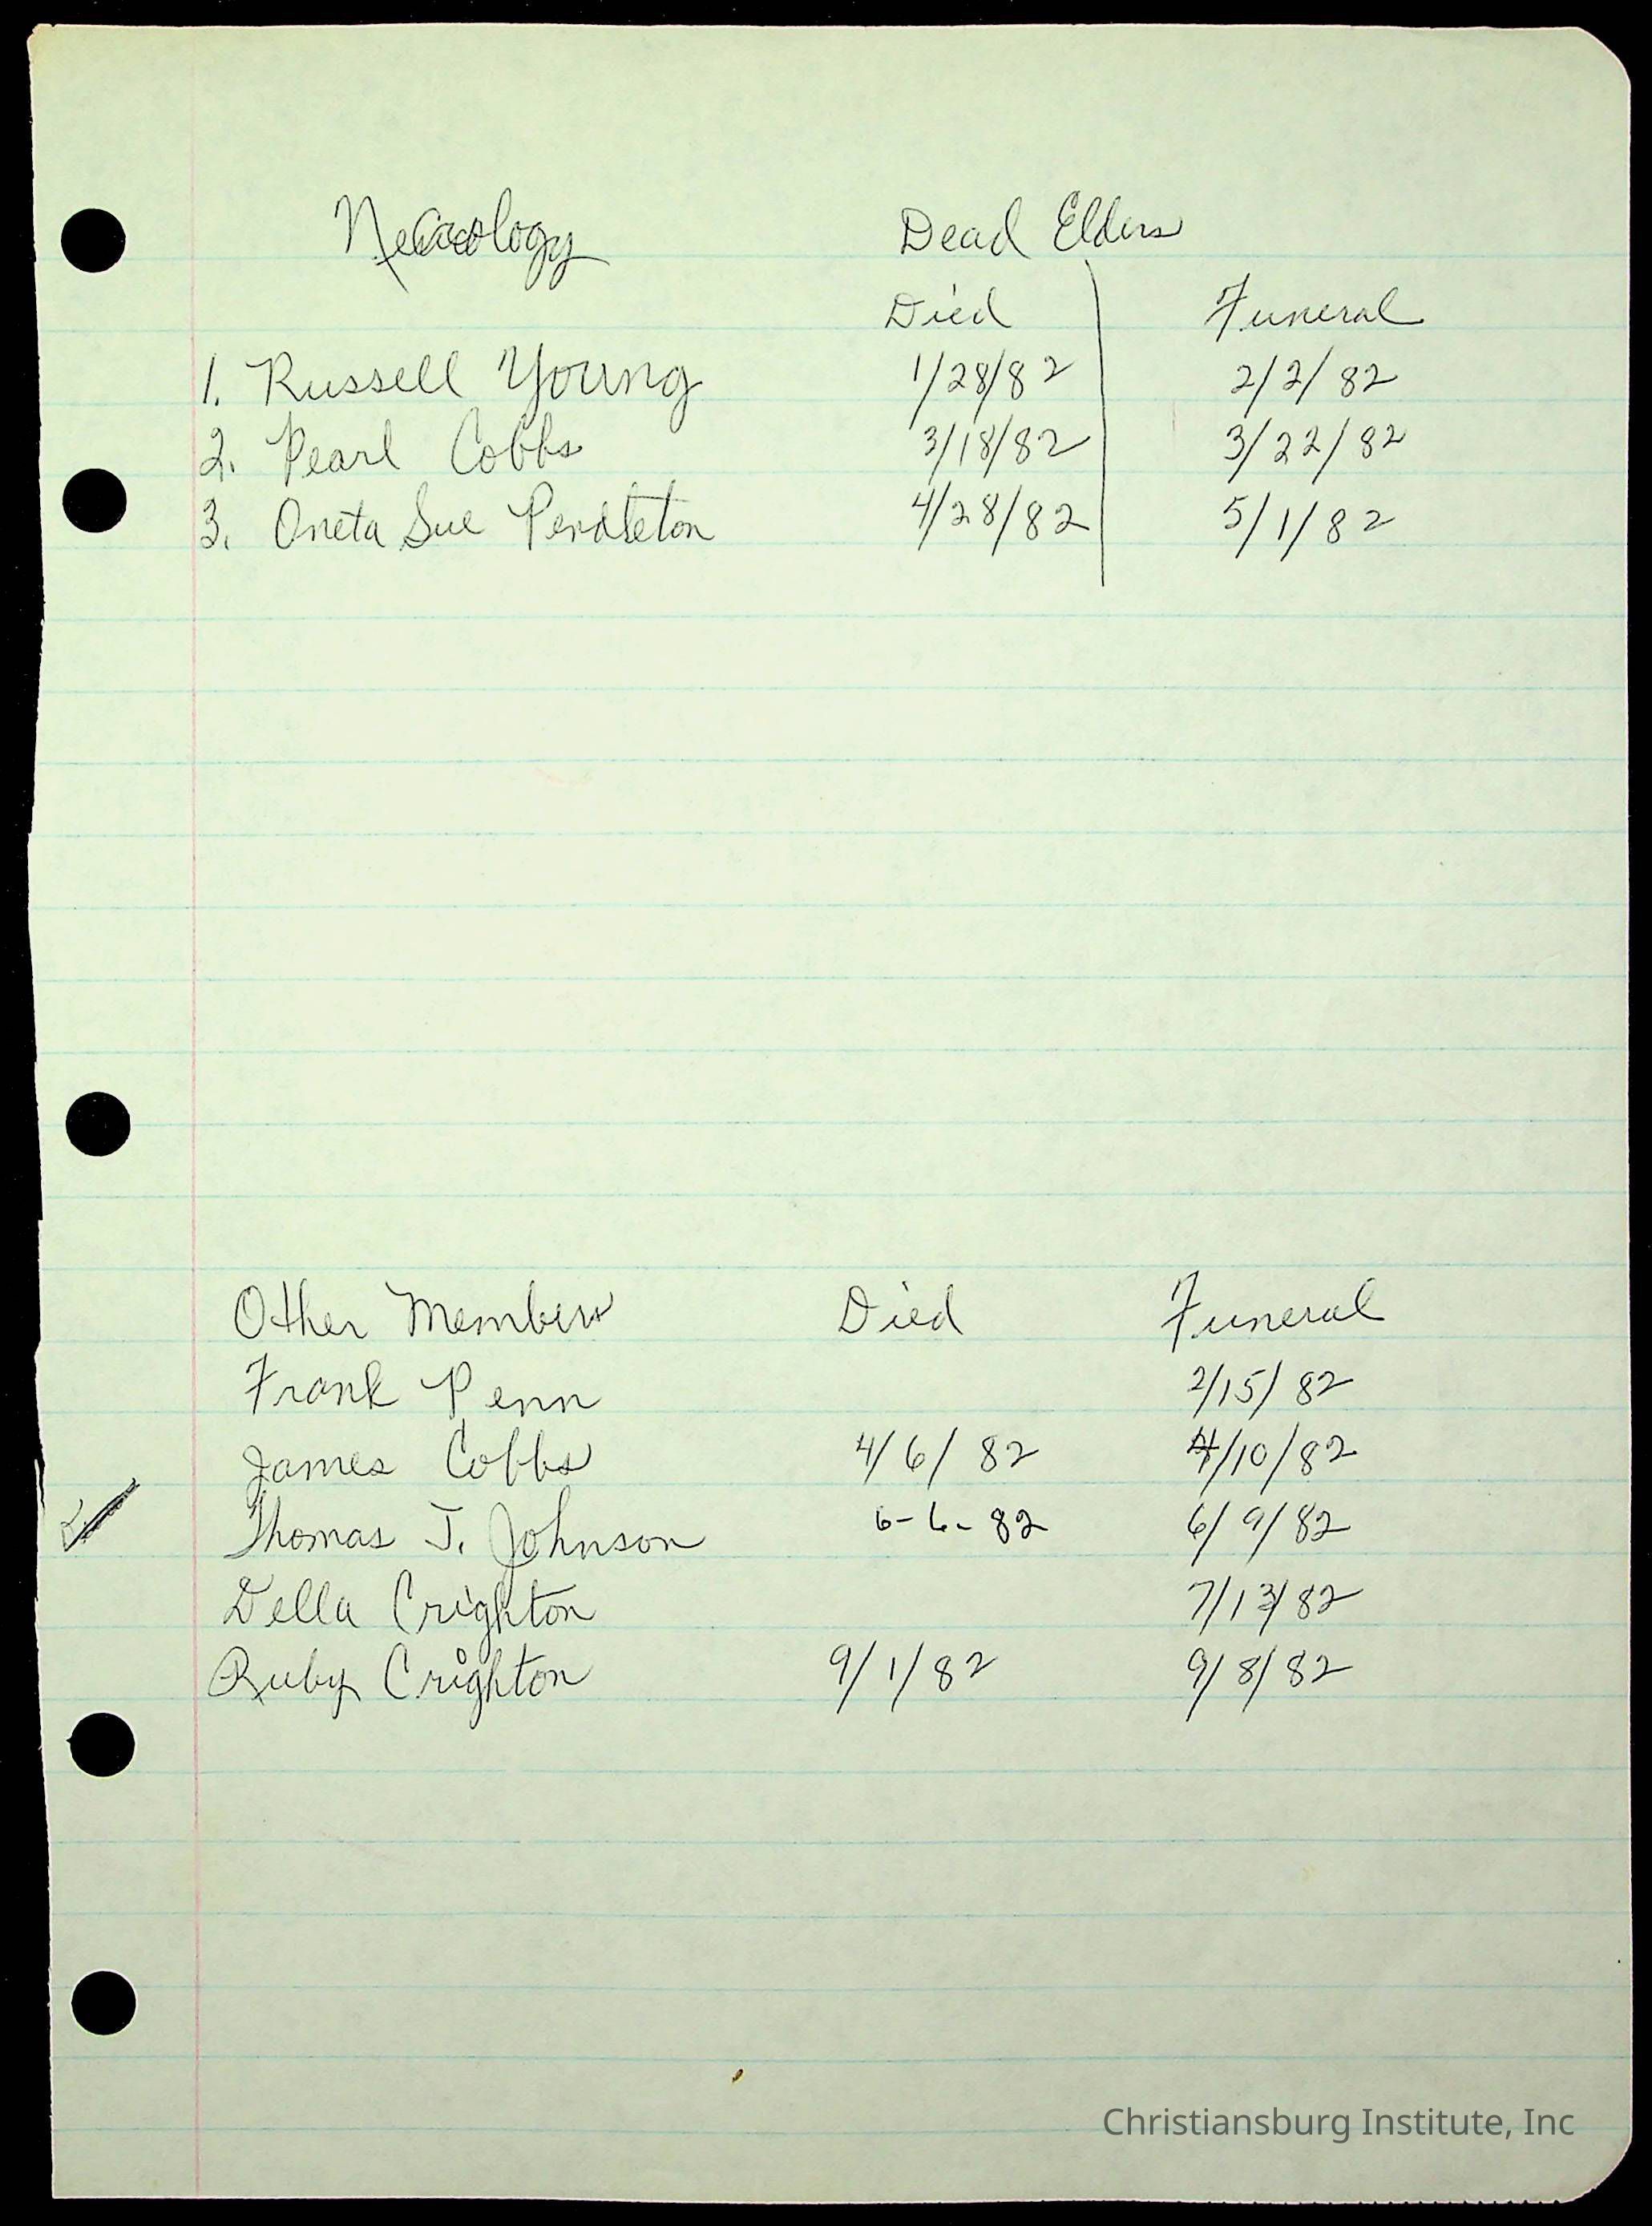 Necrology Dead Elders
Died Funeral
1. Russell Young 1/28/82 2/2/82
2. Pearl Cobbs 3/18/82 3/22/82
3. Oneta Sue Pendleton 4/28/82 5/1/82
Other Members Died Funeral
Frank Penn 2/15/82
James Cobbs 4/6/82 4/10/82
Thomas J. Johnson 6-6-82 6/9/82
Della Crighton 7/13/82
Ruby Crighton 9/1/82 9/8/82
Christiansburg Institute, Inc